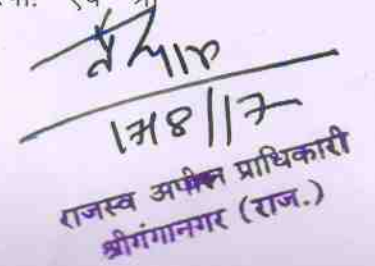 17/8/17
राजस्व अपील प्राधिकारी
श्रीगंगानगर (राज.)